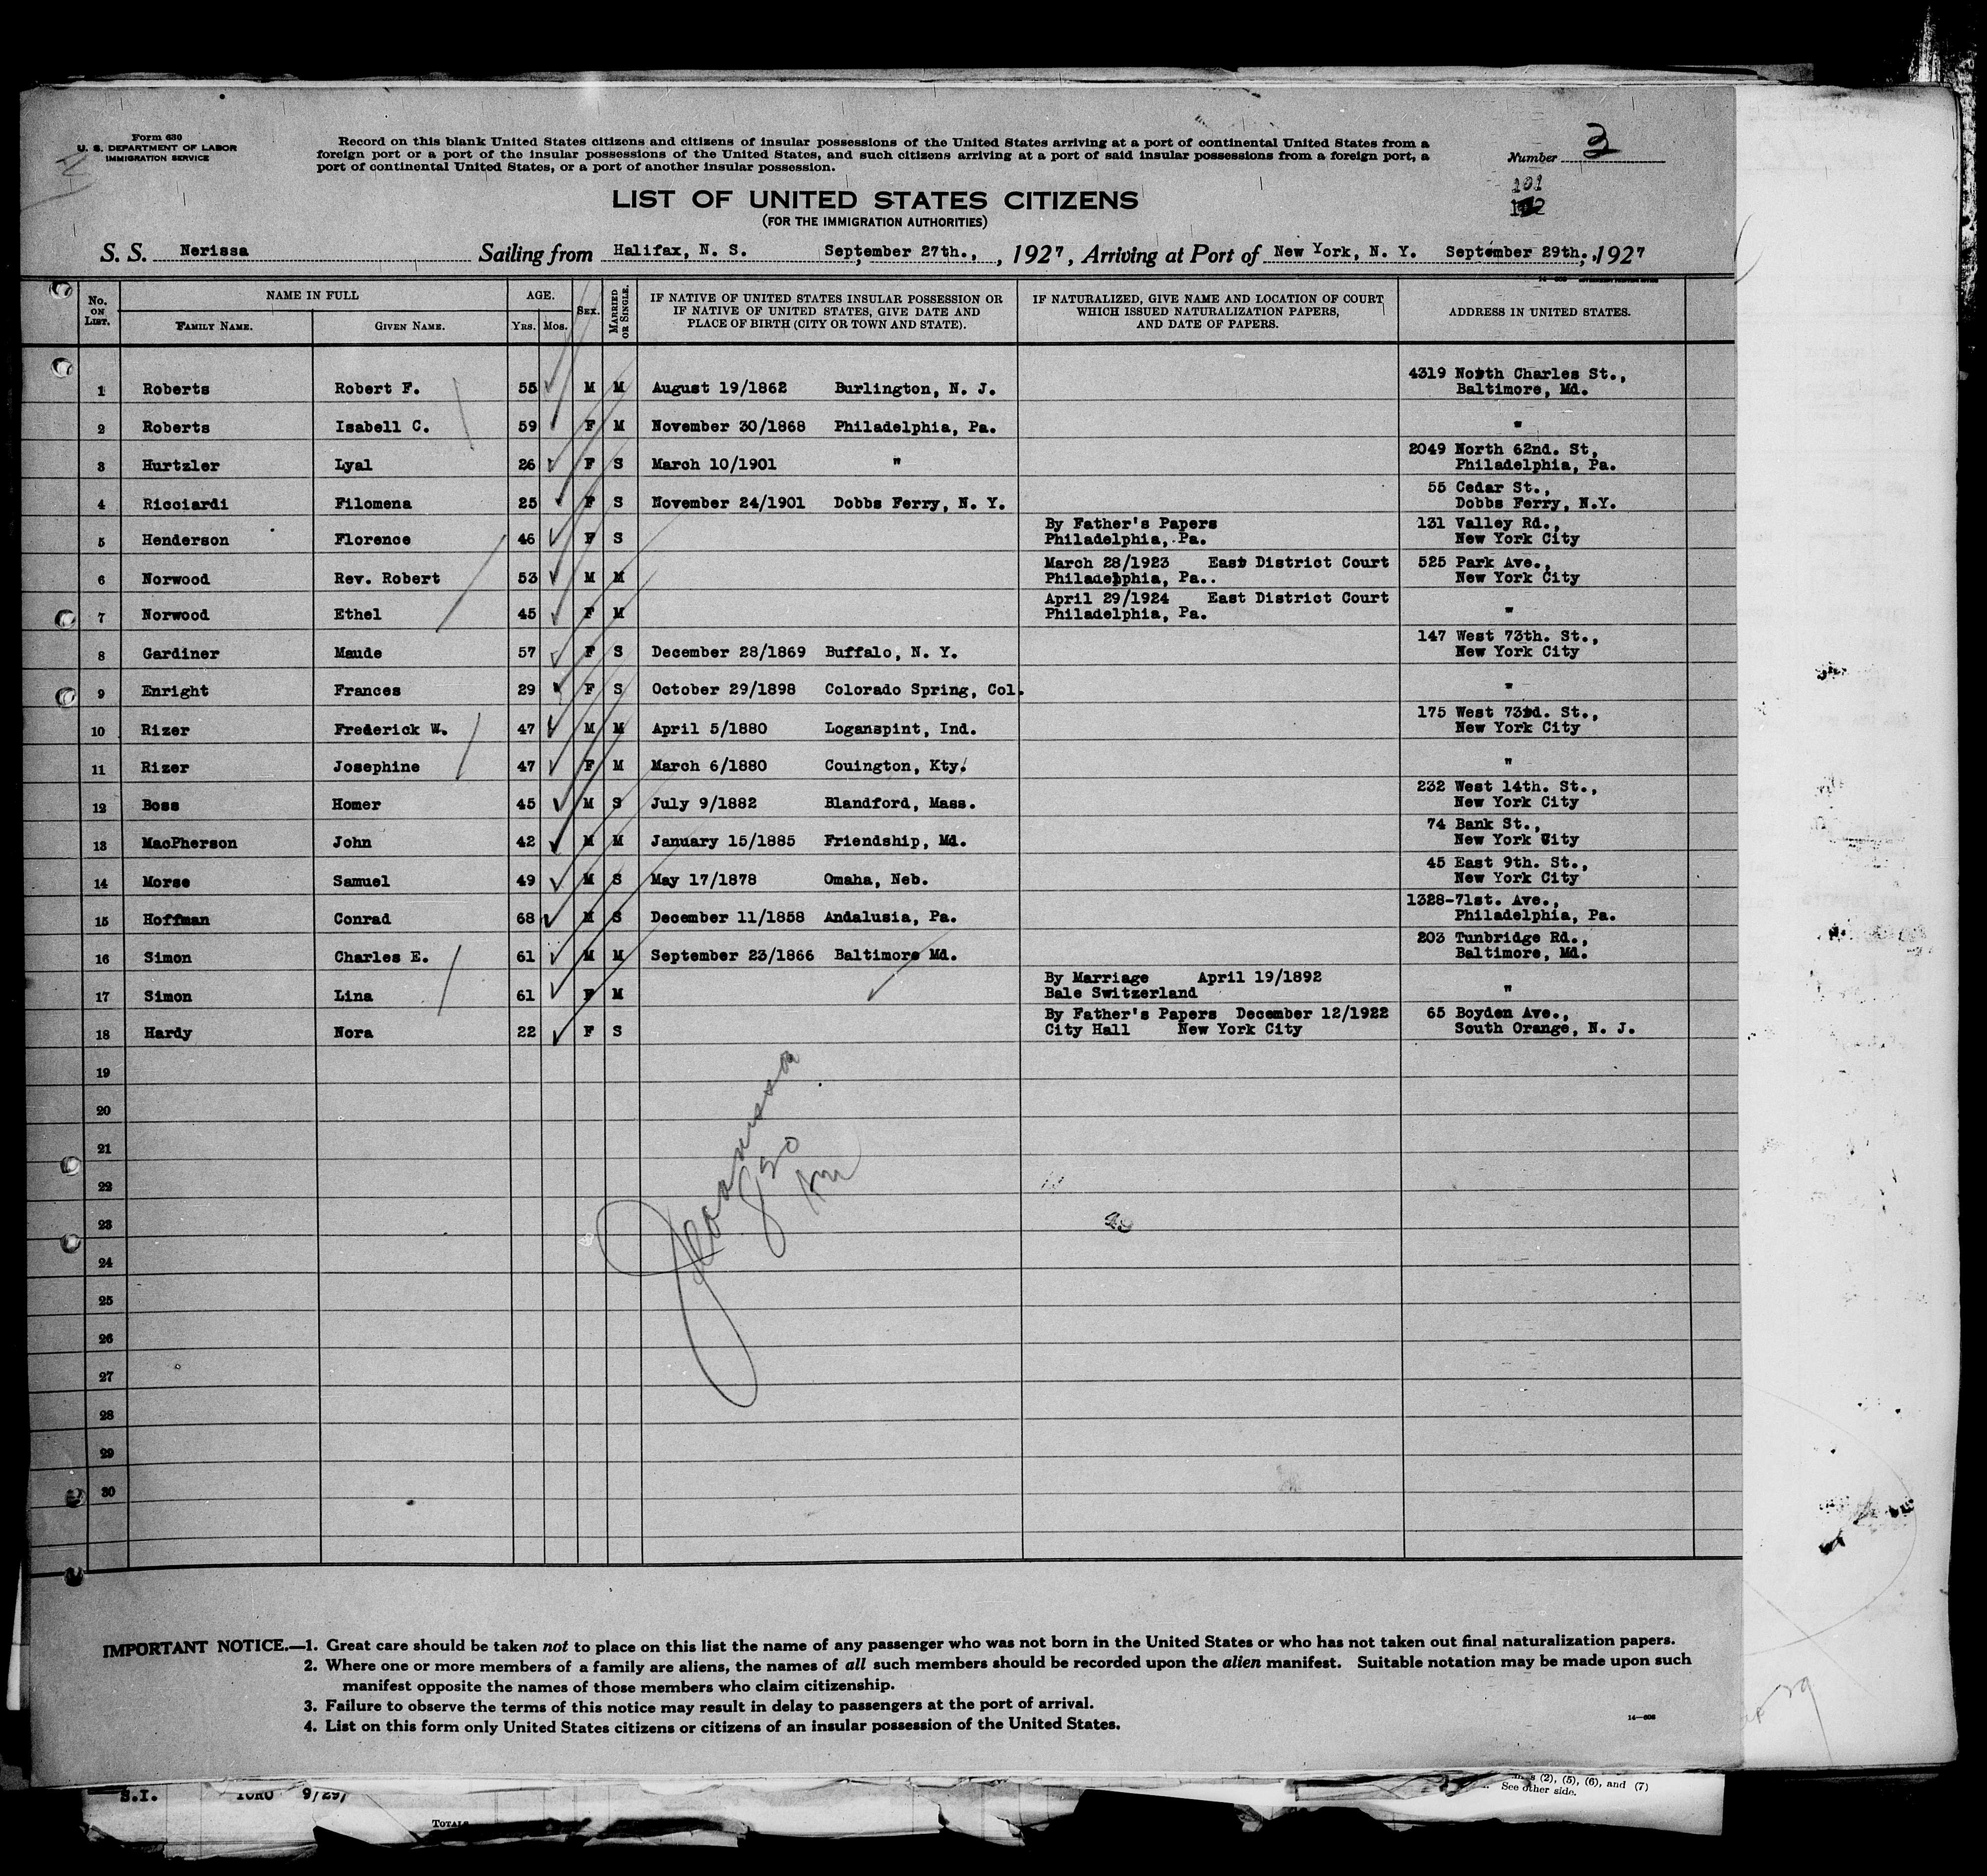 Form 630
U. S. DEPARTMENT OF LABOR
IMMIGRATION SERVICE
Record on this blank United States citizens and citizens of insular possessions of the United States arriving at a port of continental United States from a
foreign port or a port of the insular possessions of the United States, and such citizens arriving at a port of said insular possessions from a foreign port, a
port of continental United States, or a port of another insular possession.
Number 3
LIST OF UNITED STATES CITIZENS
(FOR THE IMMIGRATION AUTHORITIES)
S. S. Nerissa Sailing from Halifax, N. S. September 27th., , 1927, Arriving at Port of New York, N. Y. September 29th., 1927
No. ON LIST. NAME IN FULL FAMILY NAME. GIVEN NAME. AGE. YRS. MOS. SEX. MARRIED OR SINGLE. IF NATIVE OF UNITED STATES INSULAR POSSESSION OR IF NATIVE OF UNITED STATES, GIVE DATE AND PLACE OF BIRTH (CITY OR TOWN AND STATE). IF NATURALIZED, GIVE NAME AND LOCATION OF COURT WHICH ISSUED NATURALIZATION PAPERS, AND DATE OF PAPERS. ADDRESS IN UNITED STATES.
4319 North Charles St.,
1 Roberts Robert F. 55 M M August 19/1862 Burlington, N. J. Baltimore, Md.
2 Roberts Isabell C. 59 F M November 30/1868 Philadelphia, Pa. "
2049 North 62nd. St,
3 Hurtzler Lyal 26 F S March 10/1901 " Philadelphia, Pa.
55 Cedar St.,
4 Ricciardi Filomena 25 F S November 24/1901 Dobbs Ferry, N. Y. Dobbs Ferry, N.Y.
By Father's Papers 131 Valley Rd.,
5 Henderson Florence 46 F S Philadelphia, Pa. New York City
March 28/1923 East District Court 525 Park Ave.,
6 Norwood Rev. Robert 53 M M Philadelphia, Pa.. New York City
April 29/1924 East District Court
7 Norwood Ethel 45 F M Philadelphia, Pa. "
147 West 73th. St.,
8 Gardiner Maude 57 F S December 28/1869 Buffalo, N. Y. New York City
9 Enright Frances 29 F S October 29/1898 Colorado Spring, Col. "
175 West 73rd. St.,
10 Rizer Frederick W. 47 M M April 5/1880 Loganspint, Ind. New York City
11 Rizer Josephine 47 F M March 6/1880 Couington, Kty. "
232 West 14th. St.,
12 Boss Homer 45 M S July 9/1882 Blandford, Mass. New York City
74 Bank St.,
13 MacPherson John 42 M M January 15/1885 Friendship, Md. New York City
45 East 9th. St.,
14 Morse Samuel 49 M S May 17/1878 Omaha, Neb. New York City
1328-71st. Ave.,
15 Hoffman Conrad 68 M S December 11/1858 Andalusia, Pa. Philadelphia, Pa.
203 Tunbridge Rd.,
16 Simon Charles E. 61 M M September 23/1866 Baltimore Md. Baltimore, Md.
By Marriage April 19/1892
17 Simon Lina 61 F M Bale Switzerland "
By Father's Papers December 12/1922 65 Boyden Ave.,
18 Hardy Nora 22 F S City Hall New York City South Orange, N. J.
19
20
21
22
23
24
25
26
27
28
29
30
IMPORTANT NOTICE.—1. Great care should be taken not to place on this list the name of any passenger who was not born in the United States or who has not taken out final naturalization papers.
2. Where one or more members of a family are aliens, the names of all such members should be recorded upon the alien manifest. Suitable notation may be made upon such
manifest opposite the names of those members who claim citizenship.
3. Failure to observe the terms of this notice may result in delay to passengers at the port of arrival.
4. List on this form only United States citizens or citizens of an insular possession of the United States.
14—608
S.I. 9/29/
TOTALS
(2), (5), (6), and (7)
See other side.